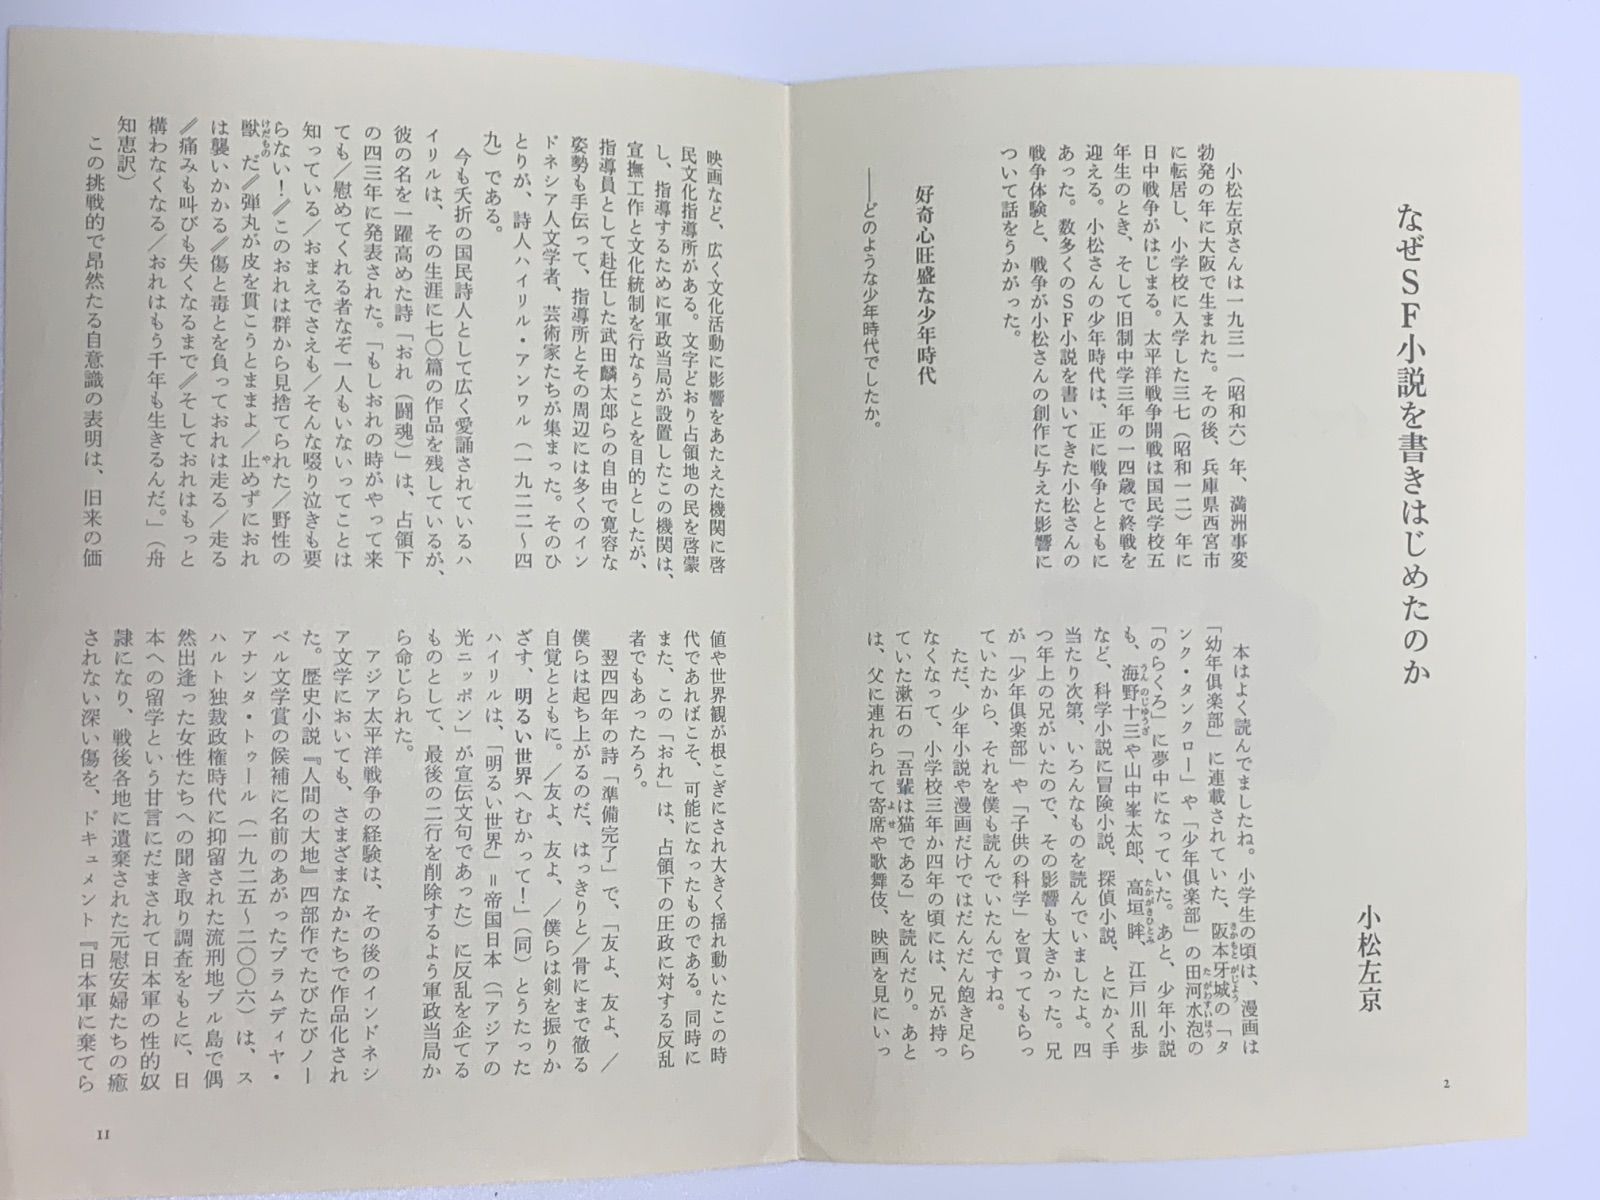 なぜSF小説を書きはじめたのか
小松左京
小松左京さんは一九三一（昭和六）年、満洲事変
勃発の年に大阪で生まれた。その後、兵庫県西宮市
に転居し、小学校に入学した三七（昭和一二）年に
日中戦争がはじまる。太平洋戦争開戦は国民学校五
年生のとき、そして旧制中学三年の一四歳で終戦を
迎える。小松さんの少年時代は、正に戦争とともに
あった。数多くのSF小説を書いてきた小松さんの
戦争体験と、戦争が小松さんの創作に与えた影響に
ついて話をうかがった。
好奇心旺盛な少年時代
――どのような少年時代でしたか。
本はよく読んでましたね。小学生の頃は、漫画は
「幼年俱楽部」に連載されていた、阪本牙城の「タ
ンク・タンクロー」や「少年俱楽部」の田河水泡の
「のらくろ」に夢中になっていた。あと、少年小説
も、海野十三や山中峯太郎、高垣眸、江戸川乱歩
など、科学小説に冒険小説、探偵小説、とにかく手
当たり次第、いろんなものを読んでいましたよ。四
つ年上の兄がいたので、その影響も大きかった。兄
が「少年俱楽部」や「子供の科学」を買ってもらっ
ていたから、それを僕も読んでいたんですね。
ただ、少年小説や漫画だけではだんだん飽き足ら
なくなって、小学校三年か四年の頃には、兄が持っ
ていた漱石の「吾輩は猫である」を読んだり。あと
は、父に連れられて寄席や歌舞伎、映画を見にいっ
2
映画など、広く文化活動に影響をあたえた機関に啓
民文化指導所がある。文字どおり占領地の民を啓蒙
し、指導するために軍政当局が設置したこの機関は、
宣撫工作と文化統制を行なうことを目的としたが、
指導員として赴任した武田麟太郎らの自由で寛容な
姿勢も手伝って、指導所とその周辺には多くのイン
ドネシア人文学者、芸術家たちが集まった。そのひ
とりが、詩人ハイリル・アンワル（一九二二～四
九）である。
今も夭折の国民詩人として広く愛誦されているハ
イリルは、その生涯に七〇篇の作品を残しているが、
彼の名を一躍高めた詩「おれ（闘魂）」は、占領下
の四三年に発表された。「もしおれの時がやって来
ても／慰めてくれる者なぞ一人もいないってことは
知っている／おまえでさえも／そんな啜り泣きも要
らない！／／このおれは群から見捨てられた／野性の
獣だ／／弾丸が皮を貫こうとままよ／止めずにおれ
は襲いかかる／／傷と毒とを負っておれは走る／走る
／／痛みも叫びも失くなるまで／／そしておれはもっと
構わなくなる／おれはもう千年も生きるんだ。」（舟
知恵訳）
この挑戦的で昂然たる自意識の表明は、旧来の価
値や世界観が根こぎにされ大きく揺れ動いたこの時
代であればこそ、可能になったものである。同時に
また、この「おれ」は、占領下の圧政に対する反乱
者でもあったろう。
翌四四年の詩「準備完了」で、「友よ、友よ、／
僕らは起ち上がるのだ、はっきりと／骨にまで徹る
自覚とともに。／友よ、友よ、／僕らは剣を振りか
ざす、明るい世界へむかって！」（同）とうたった
ハイリルは、「明るい世界」＝帝国日本（「アジアの
光ニッポン」が宣伝文句であった）に反乱を企てる
ものとして、最後の二行を削除するよう軍政当局か
ら命じられた。
アジア太平洋戦争の経験は、その後のインドネシ
ア文学においても、さまざまなかたちで作品化され
た。歴史小説『人間の大地』四部作でたびたびノー
ベル文学賞の候補に名前のあがったプラムディヤ・
アナンタ・トゥール（一九二五～二〇〇六）は、ス
ハルト独裁政権時代に抑留された流刑地ブル島で偶
然出逢った女性たちへの聞き取り調査をもとに、日
本への留学という甘言にだまされて日本軍の性的奴
隷になり、戦後各地に遺棄された元慰安婦たちの癒
されない深い傷を、ドキュメント『日本軍に棄てら
11